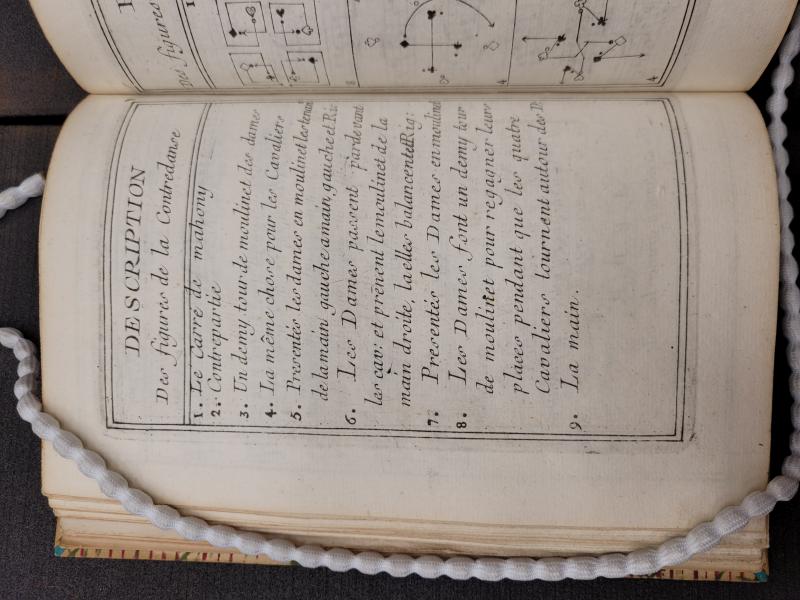 DESCRIPTION
Des figures de la Contredance
1. Le Carré de mahony
2. Contrepartie
3. Un demy tour de moulinet des dames
4. La même chose pour les Cavaliers
5. Presentés les dames en moulinet les tenant
de la main gauche a main gauche et Rig
6. Les Dames passent par devant
les cav: et prênent le moulinet de la
main droite, la elles balancent et Rig:
7. Presentés les Dames en moulinet
8. Les Dames font un demy tour
de moulinet pour regagner leurs
places pendant que les quatre
Cavaliers tournent autour des D.
9. La main.
Des figures